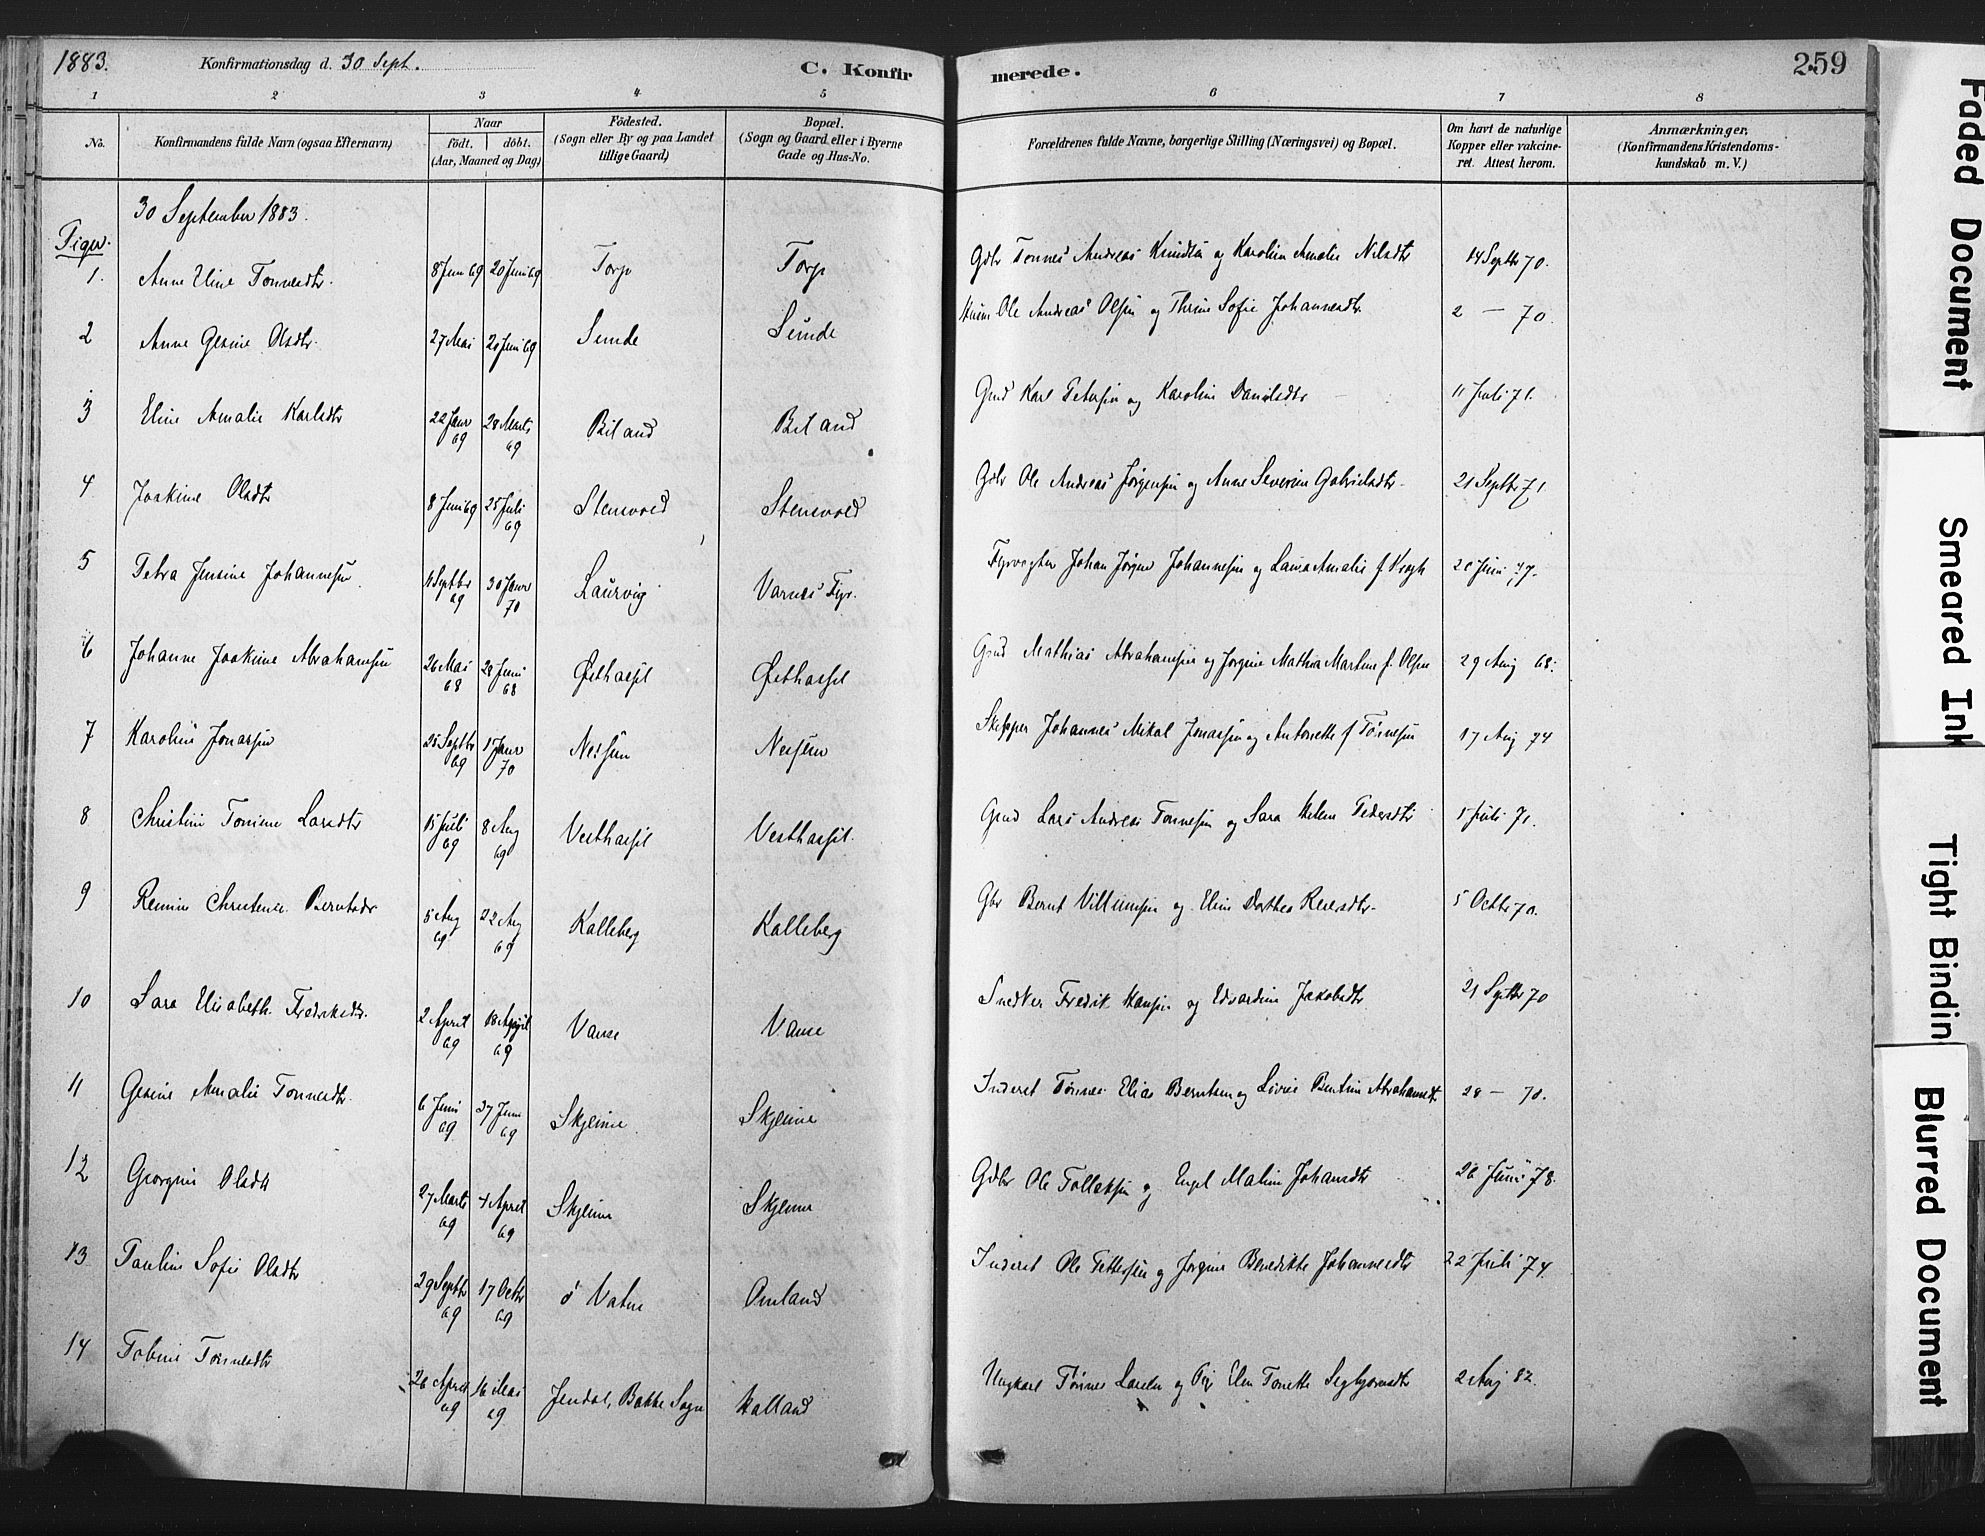 1883. Konfirmationsdag d. 30 Sept. C. Konfirmerede. 259
1 2 3 4 5 6 7 8
No. Konfirmandens fulde Navn (ogsaa Efternavn) Naar født. døbt. (Aar, Maaned og Dag) Fødested. (Sogn eller By og paa Landet tillige Gaard) Bopæl. (Sogn og Gaard eller i Byerne Gade og Hus-No. Forældrenes fulde Navne, borgerlige Stilling (Næringsvei) og Bopæl. Om havt de naturlige Kopper eller vakcineret. Attest herom. Anmærkninger. (Konfirmandens Kristendomskundskab m. V.)
30 September 1883.
Piger.
1. Anne Eline Tonnesdtr. 8 Juni 69 20 Juni 69 Torp Torp Gdbr Tonnes Andreas Knudsen og Karoline Amalie Nilsdtr 14 Septbr 70.
2 Anne Gesine Olsdtr. 27 Mai 20 Juni 69 Sunde Sunde Husm Ole Andreas Olsen og Thrine Sofie Johannesdtr 2 — 70.
3 Eline Amalie Karlsdtr 22 Janr 69 28 Marts 69 Biland Biland Gmd Karl Petersen og Karoline Danielsdtr 11 Juli 71.
4 Joakime Olsdtr 8 Juni 69 25 Juli 69 Stensvold Stensvold Gdbr Ole Andreas Jørgensen og Anne Severine Gabrielsdtr. 21 Septbr 71
5 Petra Jensine Johannesen 11 Septbr 69 30 Janr 70 Laurvig Varnes Fyr. Fyrvogter Johan Jørgen Johannesen og Laura Amalie f. Krogh 20 Juni 77.
6 Johanne Joakime Abrahamsen 26 Mai 68 28 Juni 68 Østhassel Østhassel Gmd Mathias Abrahamsen og Jorgine Mathea Martine f. Olsen 29 Aug 68.
7 Karoline Jonassen 25 Septbr 69 1 Janr 70 Nessum Nessum Skipper Johannes Mikal Jonassen og Antonette f Tönnesen 17 Aug 74
8 Christine Tomine Larsdtr 15 Juli 69 8 Aug 69 Vesthassel Vesthassel. Gmd Lars Andreas Tonnesen og Sara Helene Pedersdtr 1 Juli 71.
9 Remine Christence Berntsdr 5 Aug 69 22 Aug 69 Kalleberg Kalleberg Gbr Bernt Villumsen og Eline Dorthea Reiersdtr. 5 Octbr 70.
10 Sara Elisabeth Fredriksdtr. 2 April 69 18 April 69 Vanse Vanse Snedker Fredrik Hansen og Edvardine Jakobsdtr 21 Septbr 70
11 Gesine Amalie Tonnesdtr. 6 Juni 69 27 Juni 69 Skjeime Skjeime Inderst Tönnes Elias Berntsen og Lovise Bentine Abrahamsdtr. 28 — 70.
12 Georgine Olsdtr 27 Marts 69 4 April 69 Skjeime Skjeime Gdbr Ole Tollaksen og Engel Maline Johansdtr 26 Juni 78.
13 Pauline Sofie Olsdtr 29 Septbr 69 17 Octbr 69 ö Vatne Omland Inderst Ole Pettersen og Jorgine Benedikte Johannesdtr 22 Juli 74.
14 Tobine Tönnesdtr 26 April 69 16 Mai 69 Jendal, Bakke Sogn Halland Ungkarl Tönnes Larsen og Pig Elen Tonette Segbjornsdtr 2 Aug 82.
Faded Document
Smeared Ink
Tight Bindin
Blurred Document